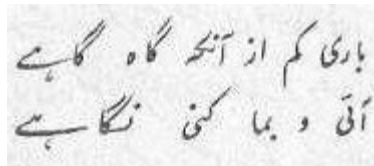 باری کم از آنکہ گاہ گاہے
آئی و بما کنی نگاہے